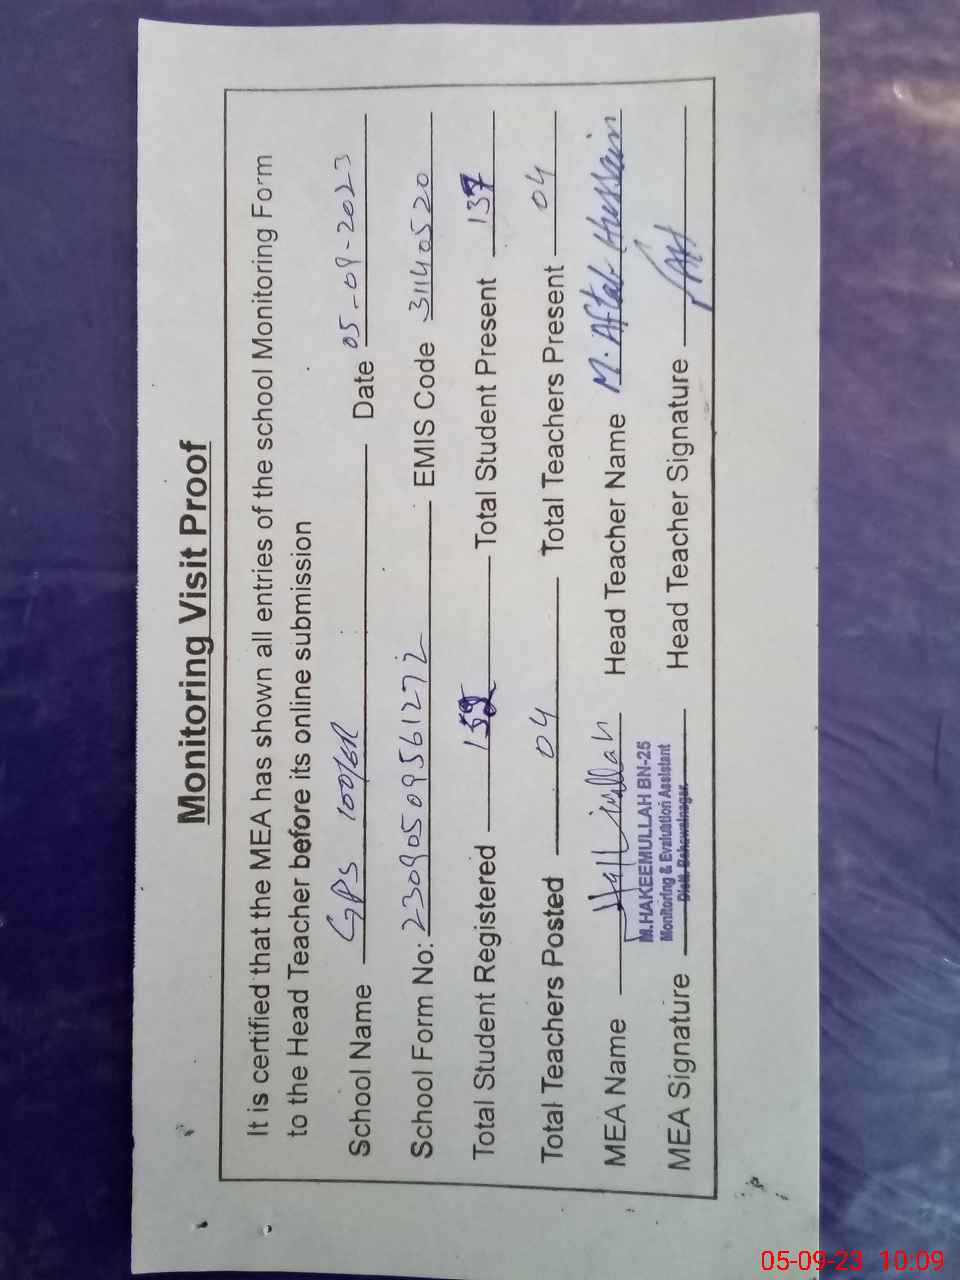 Monitoring Visit Proof
It is certified that the MEA has shown all entries of the school Monitoring Form
to the Head Teacher before its online submission
School Name GPS 100/6R Date 05-09-2023
School Form No: 23090509561272 EMIS Code 31140520
Total Student Registered Total Student Present 137
Total Teachers Posted 04 Total Teachers Present 04
MEA Name Head Teacher Name M. Aftab Hussain
M.HAKEEMULLAH BN-25
Monitoring & Evaluation Assistant
Distt. Bahawalnagar
MEA Signature Head Teacher Signature
05-09-23 10:09